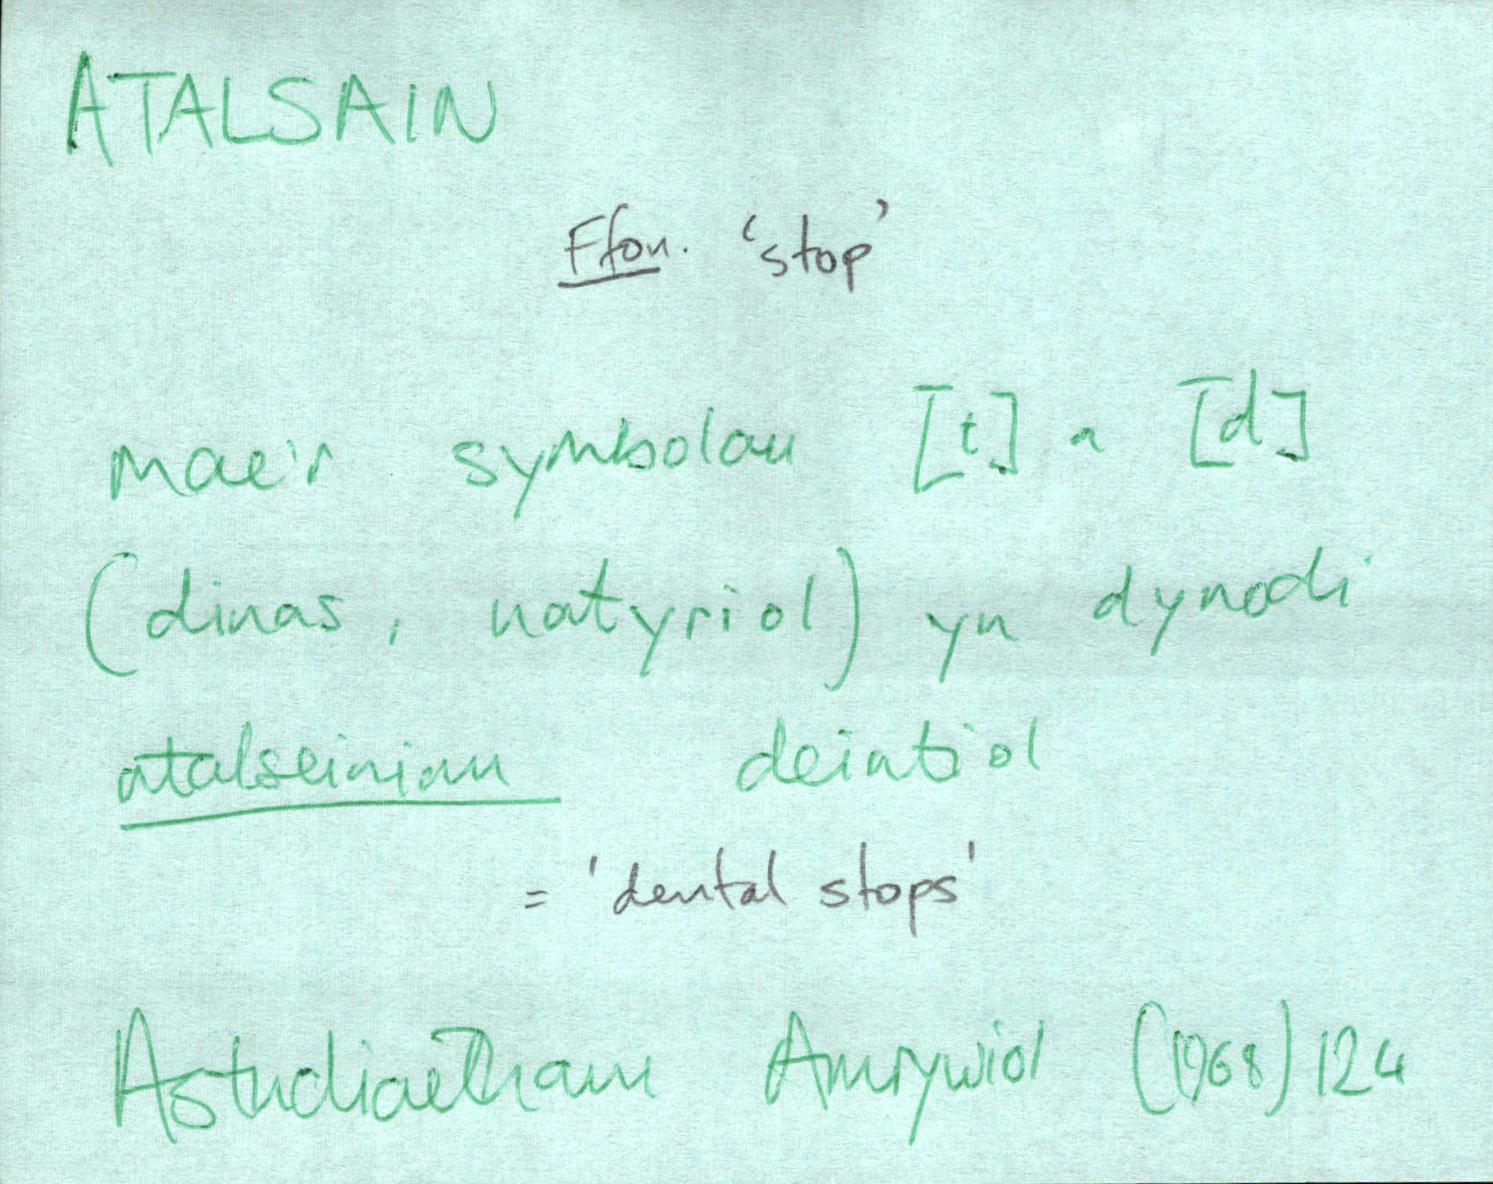 ATALSAIN
Ffon. 'stop'
mae'r symbolau [t] a [d]
(dinas, natyriol) yn dynodi
atalseiniau deintiol
= 'dental stops'
Astudiaethau Amrywiol (1968) 124